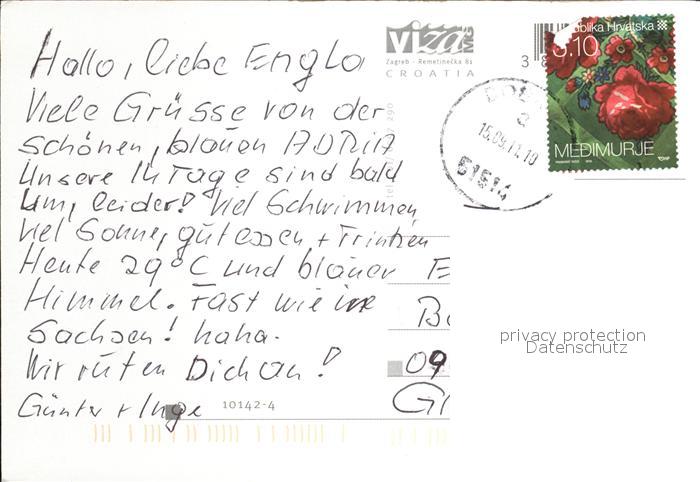 Hallo, liebe Engla
Viele Grüsse von der
schönen, blauen ADRIA
Unsere 14 Tage sind bald
um, leider! Viel Schwimmen,
viel Sonne, gut essen + Trinken
Heute 29°C und blauer
Himmel. Fast wie in
Sachsen! haha.
Wir rufen Dich an!
Günter + Inge
10142-4
viza MG
Zagreb - Remetinečka 81
CROATIA
Republika Hrvatska
3,10
MEĐIMURJE
15.09.11.10
51514
privacy protection
Datenschutz
09